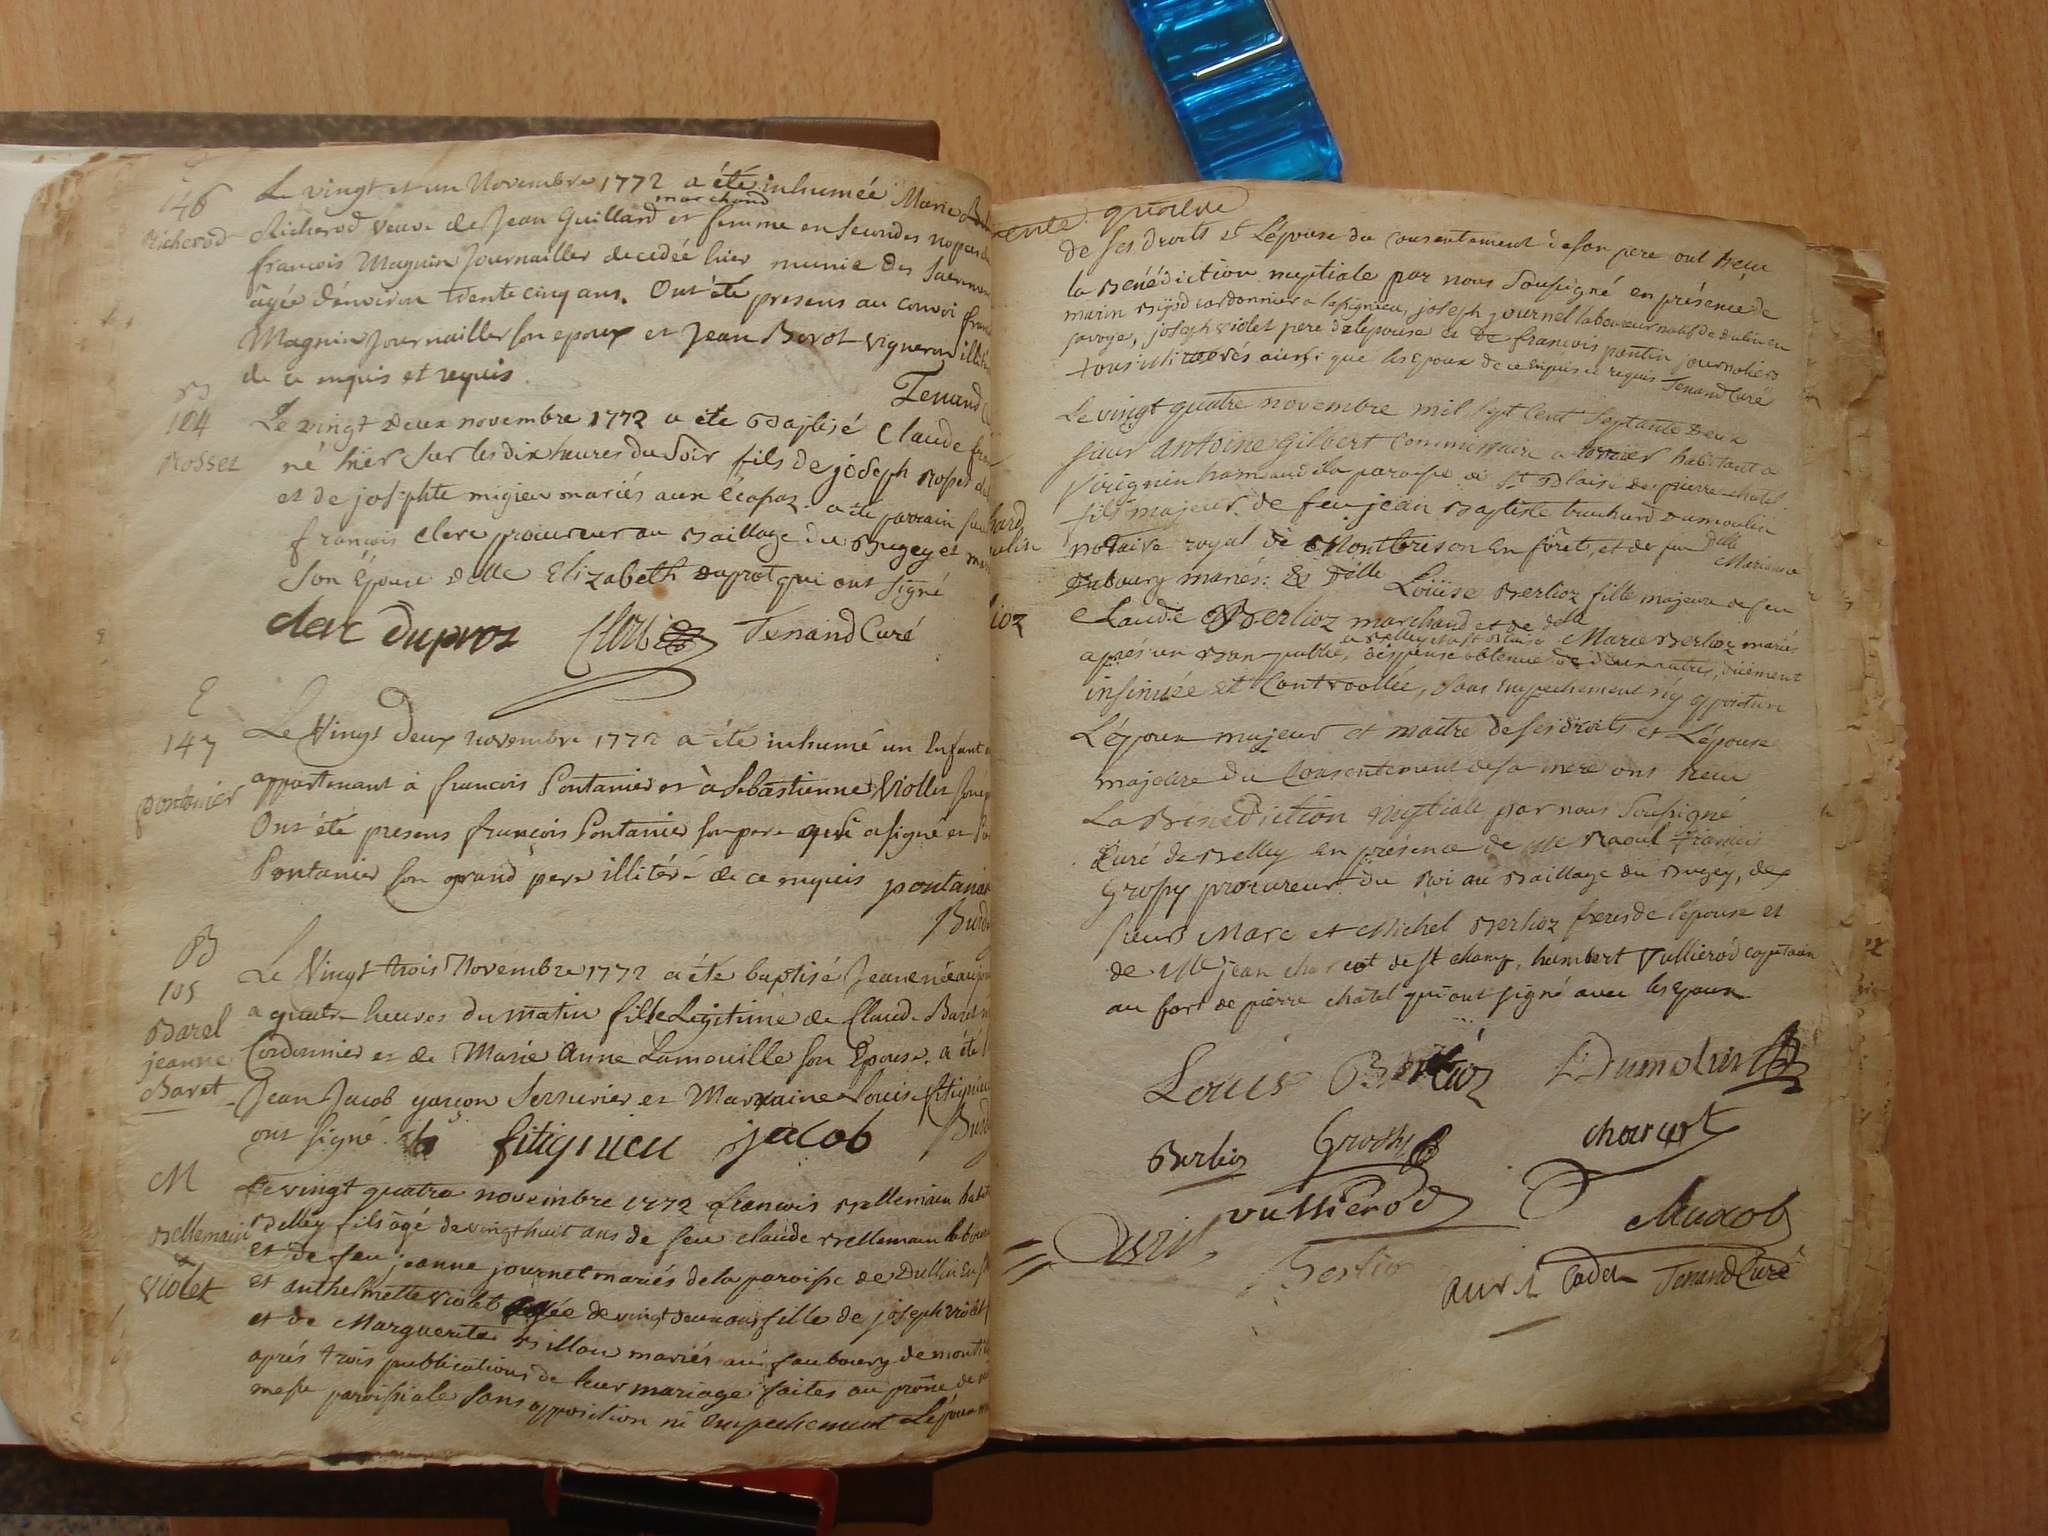 146
Richerod
Le vingt et un Novembre 1772 a été inhumée Marie
Richerod veuve de Jean Guillard marchand et femme en secondes nopces de
françois Magnin Journailler decedée hier munie des Sacremen
âgée d'environ trente cinq ans. Ont été presens au convoi fran
Magnin Journailler son epoux et Jean Borot vigneron illit
de ce enquis et requis
Tenand C
B
104
Rosset
Le vingt deux novembre 1772 a été Baptisé Claude fran
né hier sur les dix heures du Soir fils de joseph Rosset
et de josephte migieu mariés aux Ecopaz. a été parrain
françois Clerc procureur au Baillage du Bugey et mar
son Epouse delle Elizabeth duprot qui ont signé
clerc Duproz Tenand Curé
E
147
pontanier
Le Vingt deux novembre 1772 a été inhumé un Enfant
appartenant à françois Pontanier et à Sebastienne Viollet
Ont été presens françois Pontanier son pere qui a signé et
Pontanier son grand pere illitéré de ce enquis pontanier
B
105
Barel
jeanne
Baret
Le Vingt trois Novembre 1772 a été baptisé Jeane née aujou
a quatre heures du matin fille Légitime de Claude Baret
Cordonnier et de Marie Anne Lamouille son Epouse. a été
Jean Jacob garçon Serrurier et Marraine Louise fitignieu
ont signé fitignieu jacob
M
Bellemain
&
Violet
Le vingt quatre novembre 1772 françois Bellemain habit
Belley fils âgé de vingt huit ans de feu claude Bellemain labour
et de feu jeanne journet mariés de la paroisse de Dullin En
et anthelmette Violet agée de vingt deux ans fille de joseph violet
et de Marguerite Billon mariés au faubourg de
aprés trois publications de leur mariage faites au prône de
messe paroissiale sans opposition ni empechement L'époux
quatre
de ses droits et L'épouse du consentement de son pere ont Recu
la Bénédiction nuptiale par nous Soussigné en présence de
marin cordonnier a joseph journet laboureur natif de dulin en
savoye, joseph violet pere de lepouse et de françois pontin journalier
tous illiterés ainsi que les Epoux de ce enquis et requis Tenand Curé
Le vingt quatre novembre mil sept Cent Septante Deux
sieur antoine gilbert Commissaire a terrier habitant a
virignin hameau de la paroisse de St Blaise de pierre chatel
fils majeur de feu jean Baptiste buchard Dumoulin
notaire royal de Montbrison En fôret, et de feu Delle Marianne
Dubourg mariés: & Delle Loüise Berlioz fille majeure de feu
Claude Berlioz marchand et de delle Marie Berlioz mariés
aprés un Ban publié, a Belley et a st Blaise Dispense obtenue de deux autres, düement
insinuée et Controollée, sans Empechement ny opposition
L'époux majeur et maitre de ses droits et L'épouse
majeure du Consentement de sa mere ont Recu
La Bénédiction nuptiale par nous Soussigné
Curé de Belley en présence de Me Raoul françois
Grossy procureur du Roi au Baillage du Bugey, des
sieurs Marc et Michel Berlioz freres de l'épouse et
de Me jean charcot de st champ, humbert Vullierod capitaine
au fort de pierre châtel qui ont signé avec les Epoux
Louise Berlioz Dumolin
Berlioz Grossy charcot
vullierod
Berlioz
cadet Tenand Curé